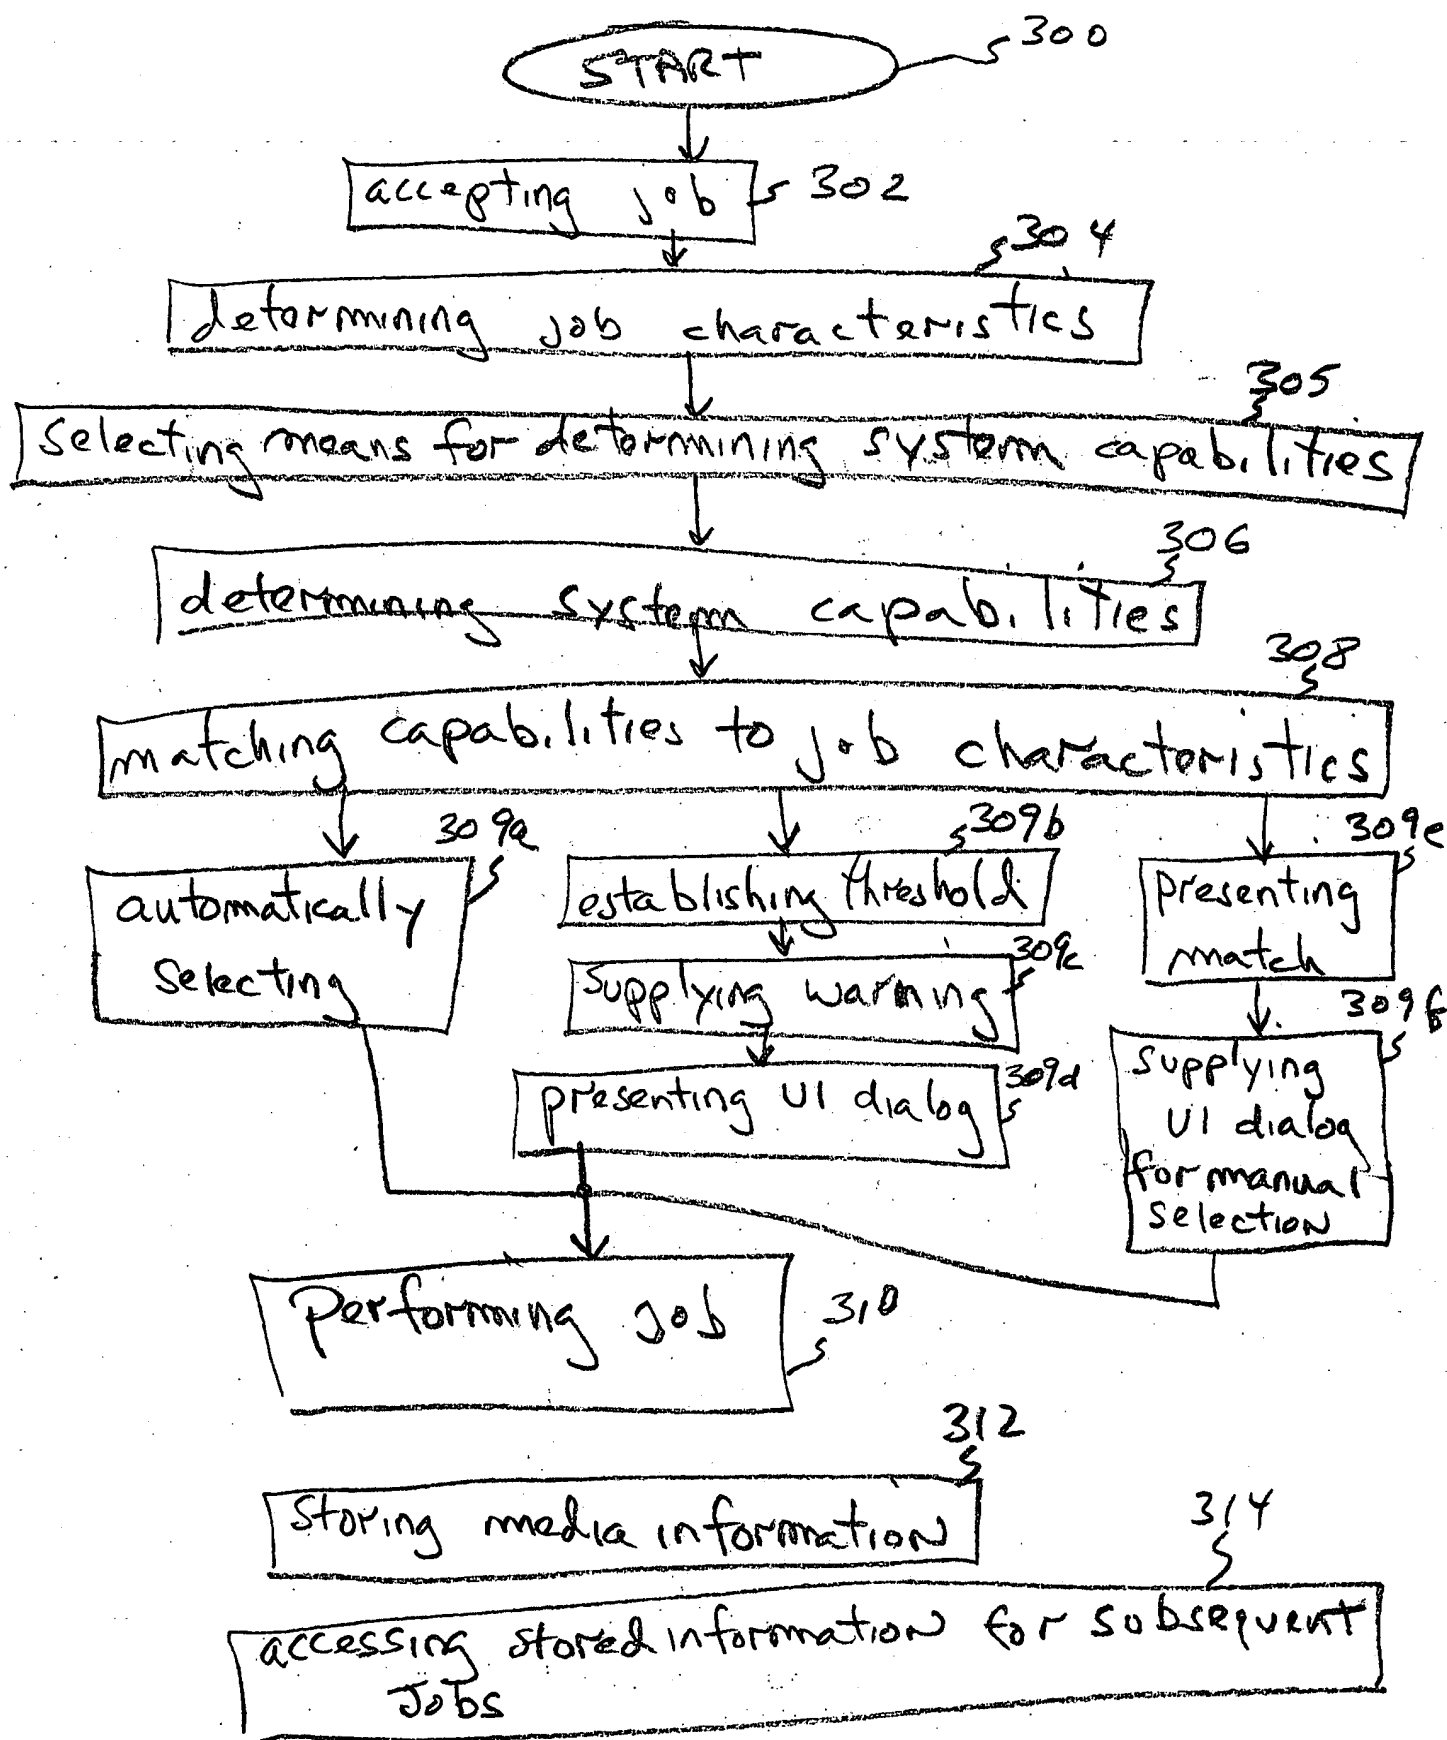 START
300
accepting job
302
304
determining job characteristics
305
Selecting means for determining system capabilities
306
determining system capabilities
308
matching capabilities to job characteristics
309a
automatically
Selecting
309b
establishing threshold
309c
Supplying warning
309d
presenting UI dialog
309e
presenting
match
309f
supplying
UI dialog
for manual
selection
Performing job
310
312
Storing media information
314
accessing stored information for subsequent
Jobs